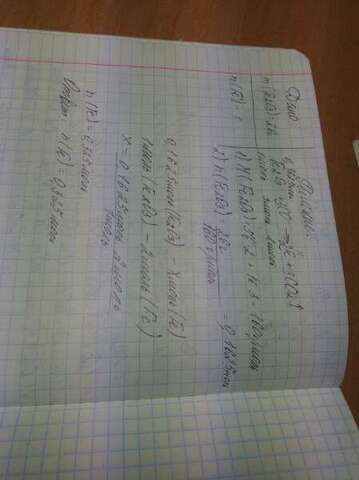 Дано
m(Fe2O3)=26г
n(Fe)-?
Решение:
0,1625моль
Fe2O3+3CO→2Fe+3CO2↑
1моль 3моль 2моль
1) M(Fe2O3)=56·2+16·3=160г/моль
2) n(Fe2O3)= 26г / 160г/моль = 0,1625моль
0,1625моль(Fe2O3) – xмоль(Fe)
1моль(Fe2O3) – 2моль(Fe)
x= 0,1625моль·2моль / 1моль
n(Fe)=0,325моль
Ответ: n(Fe)=0,325моль